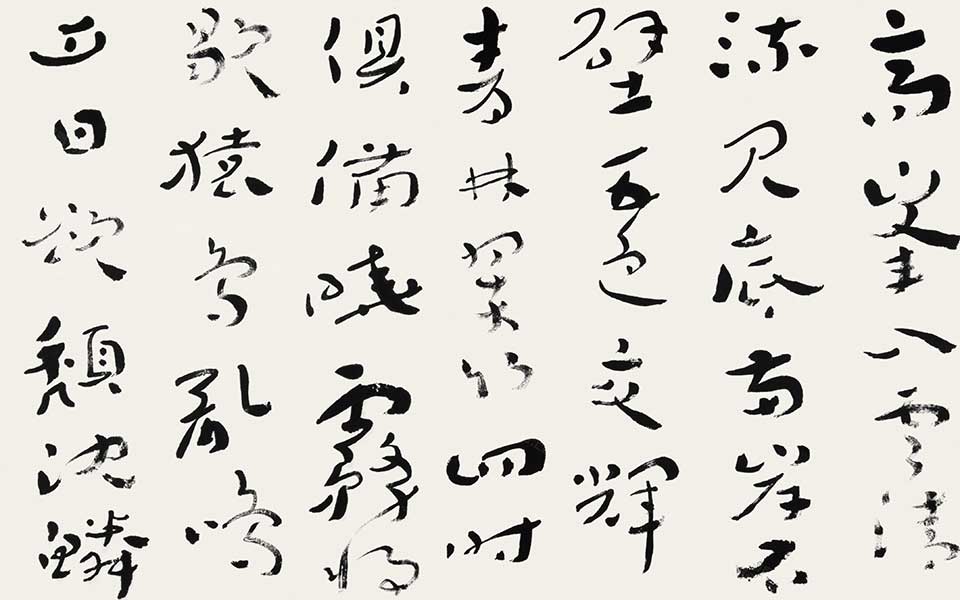 高峯入雲清
流見底兩岸石
壁五色交輝
青林翠竹四時
俱備曉霧將
歇猿鳥亂鳴
夕日欲頹沈鱗